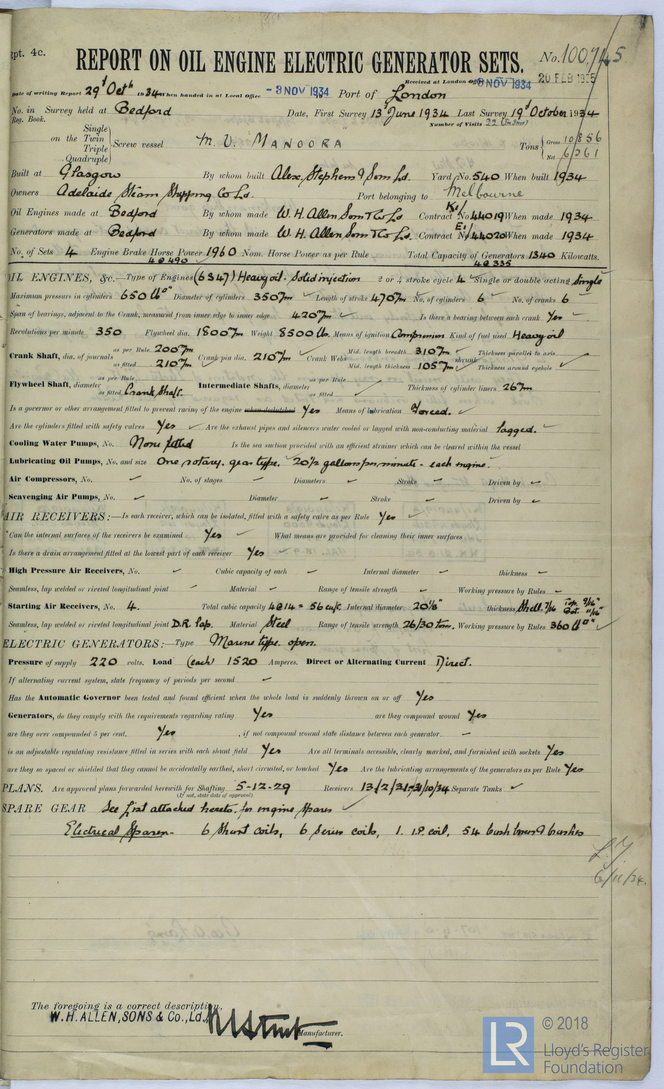 Rpt. 4c.
REPORT ON OIL ENGINE ELECTRIC GENERATOR SETS.
No. 100,745
20 FEB 1935
Received at London Office 8 NOV 1934
Date of writing Report 29th Octr 1934 When handed in at Local Office -3 NOV 1934 Port of London
No. in Survey held at Bedford Date, First Survey 13th June 1934 Last Survey 19th October 1934
Reg. Book.
Number of Visits 22
Single
on the Twin
Triple
Quadruple
Screw vessel M.V. MANOORA
Tons Gross 10856
Net 6261
Built at Glasgow By whom built Alex. Stephen & Sons Ld. Yard No. 540 When built 1934
Owners Adelaide Steam Shipping Co Ld. Port belonging to Melbourne
Oil Engines made at Bedford By whom made W.H. Allen Sons & Co Ld. Contract No. K1/44019 When made 1934
Generators made at Bedford By whom made W.H. Allen Sons & Co Ld. Contract No. E1/44020 When made 1934
No. of Sets 4 Engine Brake Horse Power 1960 Nom. Horse Power as per Rule Total Capacity of Generators 1340 Kilowatts.
4@490 4@335
OIL ENGINES, &c.—Type of Engines (6S47) Heavy oil. Solid injection 2 or 4 stroke cycle 4 Single or double acting Single
Maximum pressure in cylinders 650 lb□" Diameter of cylinders 350 m/m Length of stroke 470 m/m No. of cylinders 6 No. of cranks 6
Span of bearings, adjacent to the Crank, measured from inner edge to inner edge 420 m/m Is there a bearing between each crank Yes
Revolutions per minute 350 Flywheel dia. 1800 m/m Weight 8500 lbs. Means of ignition Compression Kind of fuel used Heavy oil
Crank Shaft, dia. of journals as per Rule 200 m/m as fitted 210 m/m Crank pin dia. 210 m/m Crank Webs Mid. length breadth 310 m/m Mid. length thickness 105 m/m shrunk Thickness parallel to axis Thickness around eyehole
Flywheel Shaft, diameter as per Rule as fitted Crank Shaft. Intermediate Shafts, diameter as per Rule as fitted Thickness of cylinder liners 26 m/m
Is a governor or other arrangement fitted to prevent racing of the engine Yes Means of lubrication Forced.
Are the cylinders fitted with safety valves Yes Are the exhaust pipes and silencers water cooled or lagged with non-conducting material Lagged.
Cooling Water Pumps, No. None fitted Is the sea suction provided with an efficient strainer which can be cleared within the vessel
Lubricating Oil Pumps, No. and size One rotary. gear type. 20½ gallons per minute - each engine.
Air Compressors, No. No. of stages Diameters Stroke Driven by
Scavenging Air Pumps, No. Diameter Stroke Driven by
AIR RECEIVERS:—Is each receiver, which can be isolated, fitted with a safety valve as per Rule Yes
Can the internal surfaces of the receivers be examined Yes What means are provided for cleaning their inner surfaces
Is there a drain arrangement fitted at the lowest part of each receiver Yes
High Pressure Air Receivers, No. Cubic capacity of each Internal diameter thickness
Seamless, lap welded or riveted longitudinal joint Material Range of tensile strength Working pressure by Rules
Starting Air Receivers, No. 4. Total cubic capacity 4@14 = 56 cu ft. Internal diameter 20⅛" thickness Shell 7/16
Seamless, lap welded or riveted longitudinal joint D.R. lap. Material Steel Range of tensile strength 26/30 tons. Working pressure by Rules 360 lb□"
ELECTRIC GENERATORS:—Type Marine type. open.
Pressure of supply 220 volts. Load (each) 1520 Amperes. Direct or Alternating Current Direct.
If alternating current system, state frequency of periods per second
Has the Automatic Governor been tested and found efficient when the whole load is suddenly thrown on or off Yes
Generators, do they comply with the requirements regarding rating Yes are they compound wound Yes
are they over compounded 5 per cent. Yes, if not compound wound state distance between each generator
is an adjustable regulating resistance fitted in series with each shunt field Yes Are all terminals accessible, clearly marked, and furnished with sockets Yes
are they so spaced or shielded that they cannot be accidentally earthed, short circuited, or touched Yes Are the lubricating arrangements of the generators as per Rule Yes
PLANS. Are approved plans forwarded herewith for Shafting 5-12-29 Receivers 13/2/31 Separate Tanks
(If not, state date of approval)
SPARE GEAR See List attached hereto. for engine spares
Electrical Spares- 6 Shunt coils, 6 Series coils, 1. I.P. coil, 54
6/11/34.
The foregoing is a correct description,
W.H. ALLEN, SONS & Co., Ld.,
Manufacturer.
LR
© 2018
Lloyd's Register
Foundation